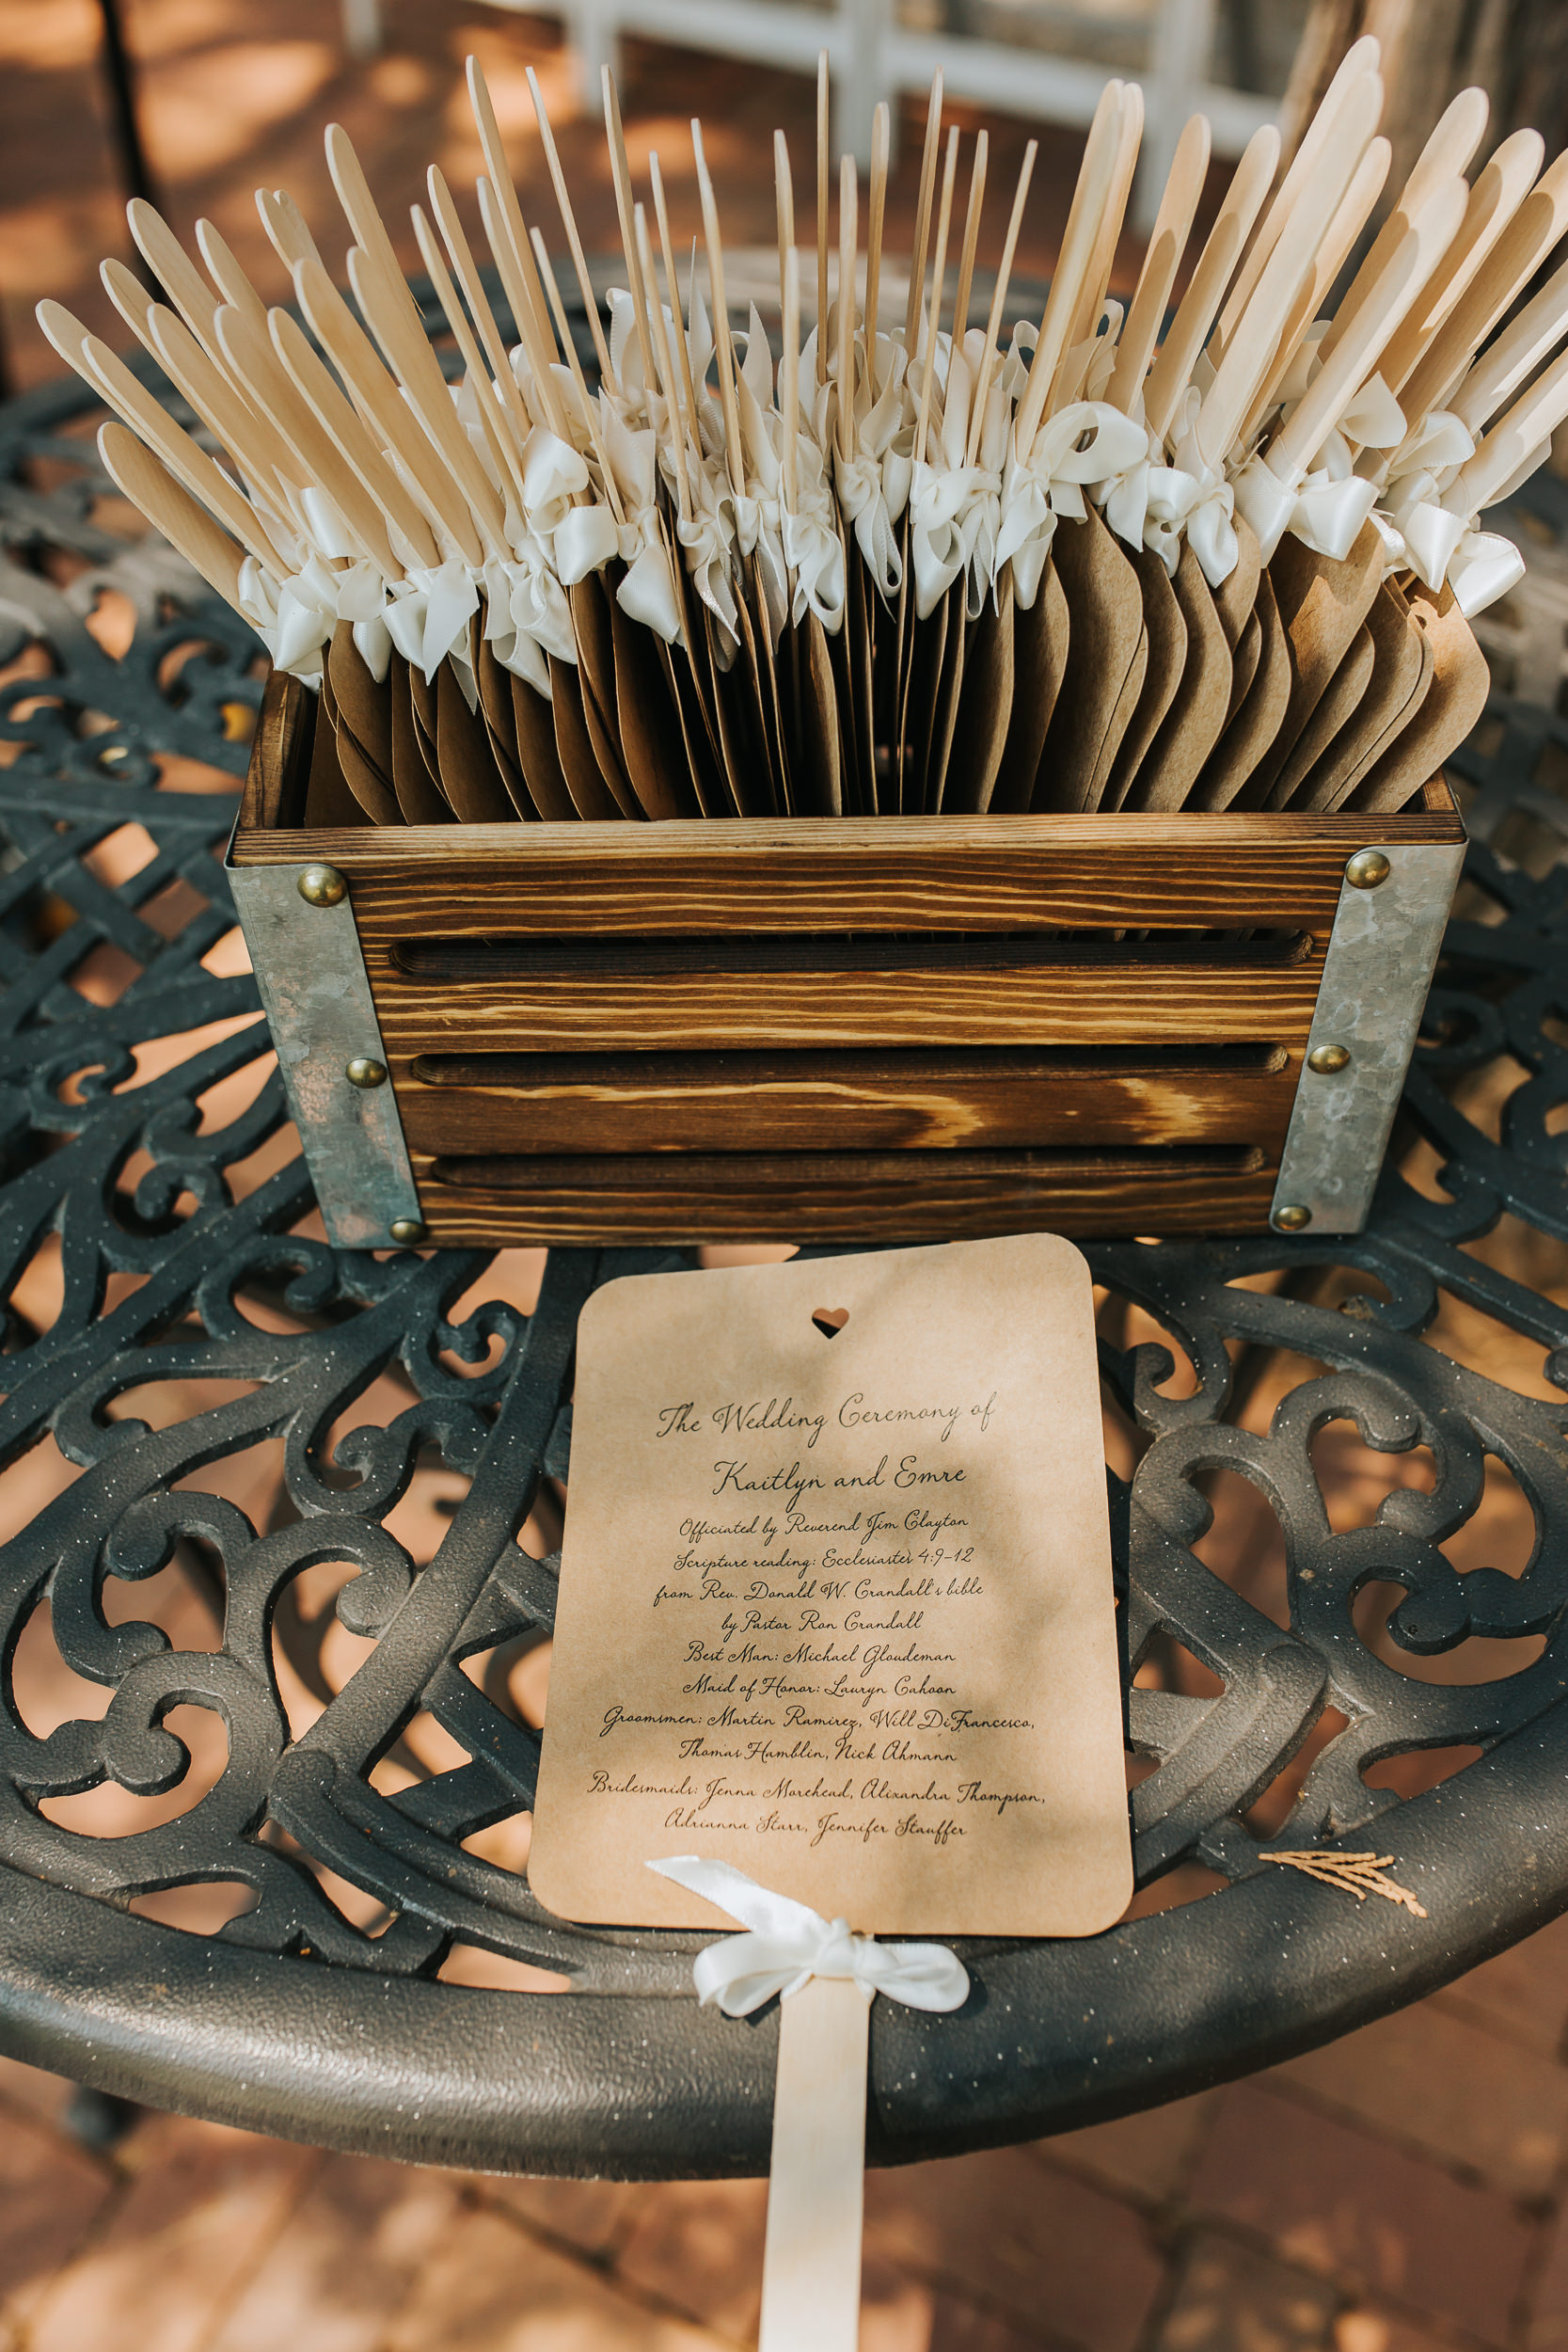 The Wedding Ceremony of
Kaitlyn and Emre
Officiated by Reverend Jim Clayton
Scripture reading: Ecclesiastes 4:9-12
from Rev. Donald W. Crandall's bible
by Pastor Ron Crandall
Best Man: Michael Gloudeman
Maid of Honor: Lauryn Cahoon
Groomsmen: Martin Ramirez, Will DiFrancesco,
Thomas Hamblin, Nick Ahmann
Bridesmaids: Jenna Morehead, Alixandra Thompson,
Adrianna Starr, Jennifer Stauffer